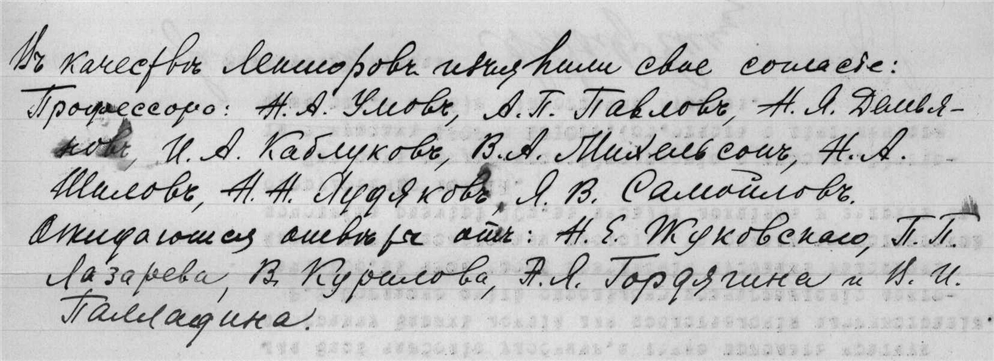 Въ качествѣ Лекторовъ изъявили свое согласіе:
Профессора: Н. А. Умовъ, А. П. Павловъ, Н. Я. Демья-
новъ, И. А. Каблуковъ, В. А. Михельсонъ, Н. А.
Шиловъ, Н. Н. Худяковъ, Я. В. Самойловъ.
Ожидаются отвѣты отъ: Н. Е. Жуковскаго, П. П.
Лазарева, В. Курилова, А. Я. Гордягина и В. И.
Палладина.